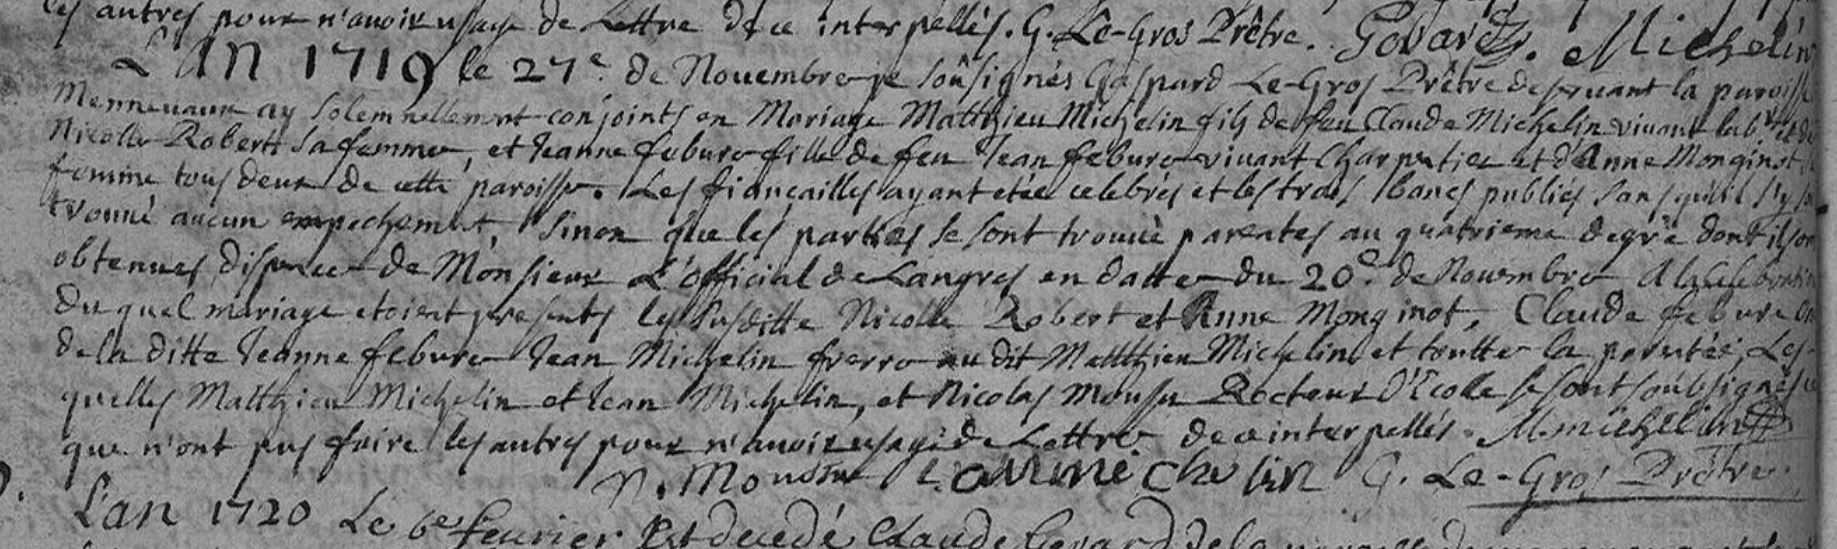 les autres pour n'avoir usage de Lettre de ce interpellés. G. Le-Gros Prêtre. Govard. Michelin
L'AN 1719 le 27e de Novembre je soûsignés Gaspard Le-Gros Prêtre deservant la paroisse
Mennevaux ay solemnellement conjoints en Mariage Matthieu Michelin fils de feu Claude Michelin vivant lab. et de
Nicolle Robert sa femme, et Jeanne febure fille de feu Jean febure vivant Charpentier et d'Anne Monginot sa
femme tous deux de cette paroisse. Les fiancailles ayant etée celebrés et les trois bancs publiés sans qu'il s'y soit
trouvé aucun empechement, sinon que les parties se sont trouvé parentes au quatrieme degré dont ils ont
obtenues dispence de Monsieur L'official de Langres en datte du 20e de Novembre A la Celebration
du quel mariage etoient presents les susditte Nicolle Robert et Anne Monginot, Claude febure
de la ditte Jeanne febure Jean Michelin frerre au dit Matthieu Michelin et toutte la parentée, Les-
quelles Matthieu Michelin et Jean Michelin, et Nicolas Mousu Recteur d'Ecolle se sont soubsignés ce
que n'ont pus faire les autres pour n'avoir usage de Lettre de ce interpellés. M. michelin
N. Mousu Jean michelin G. Le-Gros Prêtre
L'an 1720 Le 6e fevrier Est decedé Claude Govard de la